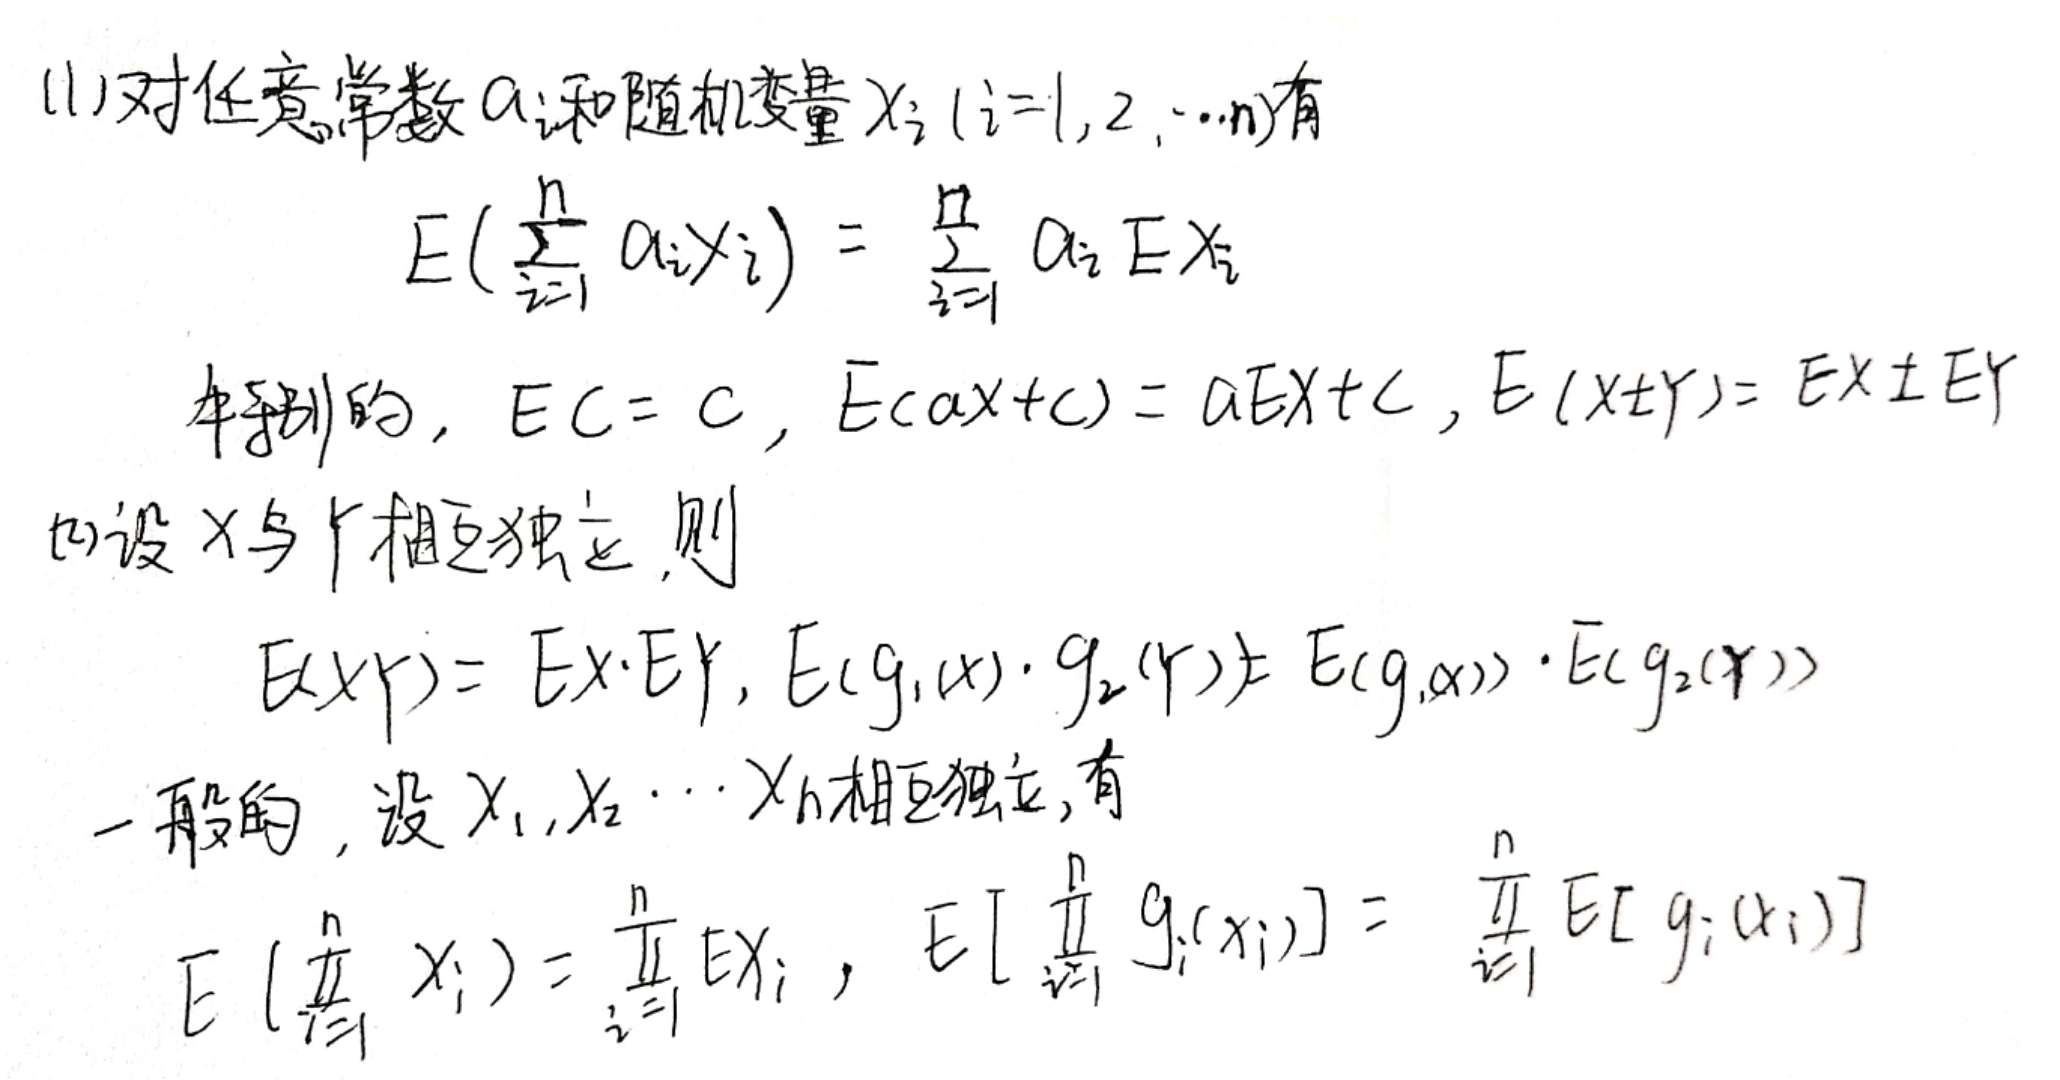 (1)对任意常数 aᵢ和随机变量 Xᵢ (i=1,2,…n)有
E(∑ᵢ₌₁ⁿ aᵢXᵢ) = ∑ᵢ₌₁ⁿ aᵢ E Xᵢ
特别的, EC=C, E(aX+c)=aEX+c, E(X±Y)=EX±EY
(2)设 X与Y相互独立,则
E(XY)=EX·EY, E(g₁(X)·g₂(Y))=E(g₁(X))·E(g₂(Y))
一般的,设 X₁,X₂…Xₙ相互独立,有
E(∏ᵢ₌₁ⁿ Xᵢ)=∏ᵢ₌₁ⁿ EXᵢ, E[∏ᵢ₌₁ⁿ gᵢ(Xᵢ)]=∏ᵢ₌₁ⁿ E[gᵢ(Xᵢ)]